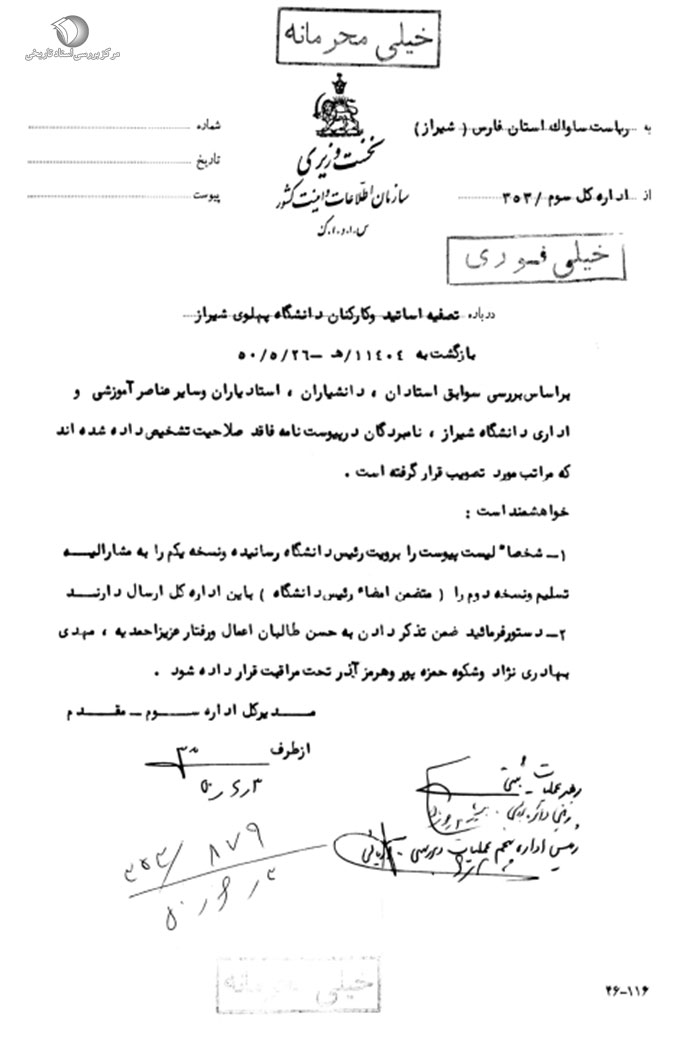 خیلی محرمانه
مرکز بررسی اسناد تاریخی
به ریاست ساواك استان فارس ( شیراز )
شماره
نخست وزیری
تاریخ
سازمان اطلاعات و امنیت کشور
از اداره کل سوم /۳۵۳
پیوست
س.ا.و.ا.ک
خیلی فوری
درباره تصفیه اساتید وکارکنان دانشگاه پهلوی شیراز
بازگشت به ۱۱٤۰٤/هـ -۵۰/۵/۲٦
براساس بررسی سوابق استادان ، دانشیاران ، استادیاران وسایر عناصر آموزشی و
اداری دانشگاه شیراز ، نامبردگان درپیوست نامه فاقد صلاحیت تشخیص داده شده اند
که مراتب مورد تصویب قرار گرفته است .
خواهشمند است :
۱- شخصاً لیست پیوست را برویت رئیس دانشگاه رسانیده ونسخه یکم را به مشارالیه
تسلیم ونسخه دوم را ( متضمن امضاء رئیس دانشگاه ) باین اداره کل ارسال دارند
۲- دستورفرمائید ضمن تذکر دادن به حسن طالبان اعمال ورفتار عزیزاحمدیه ، مهدی
بهادری نژاد وشکوه حمزه پور وهرمز آذر تحت مراقبت قرار داده شود .
مدیرکل اداره سوم - مقدم
ازطرف
رهبر عملیات -
رئیس اداره پنجم عملیات و بررسی -
۳۵۳/ ۸۷۹
خیلی محرمانه
۴۶-۱۱۶